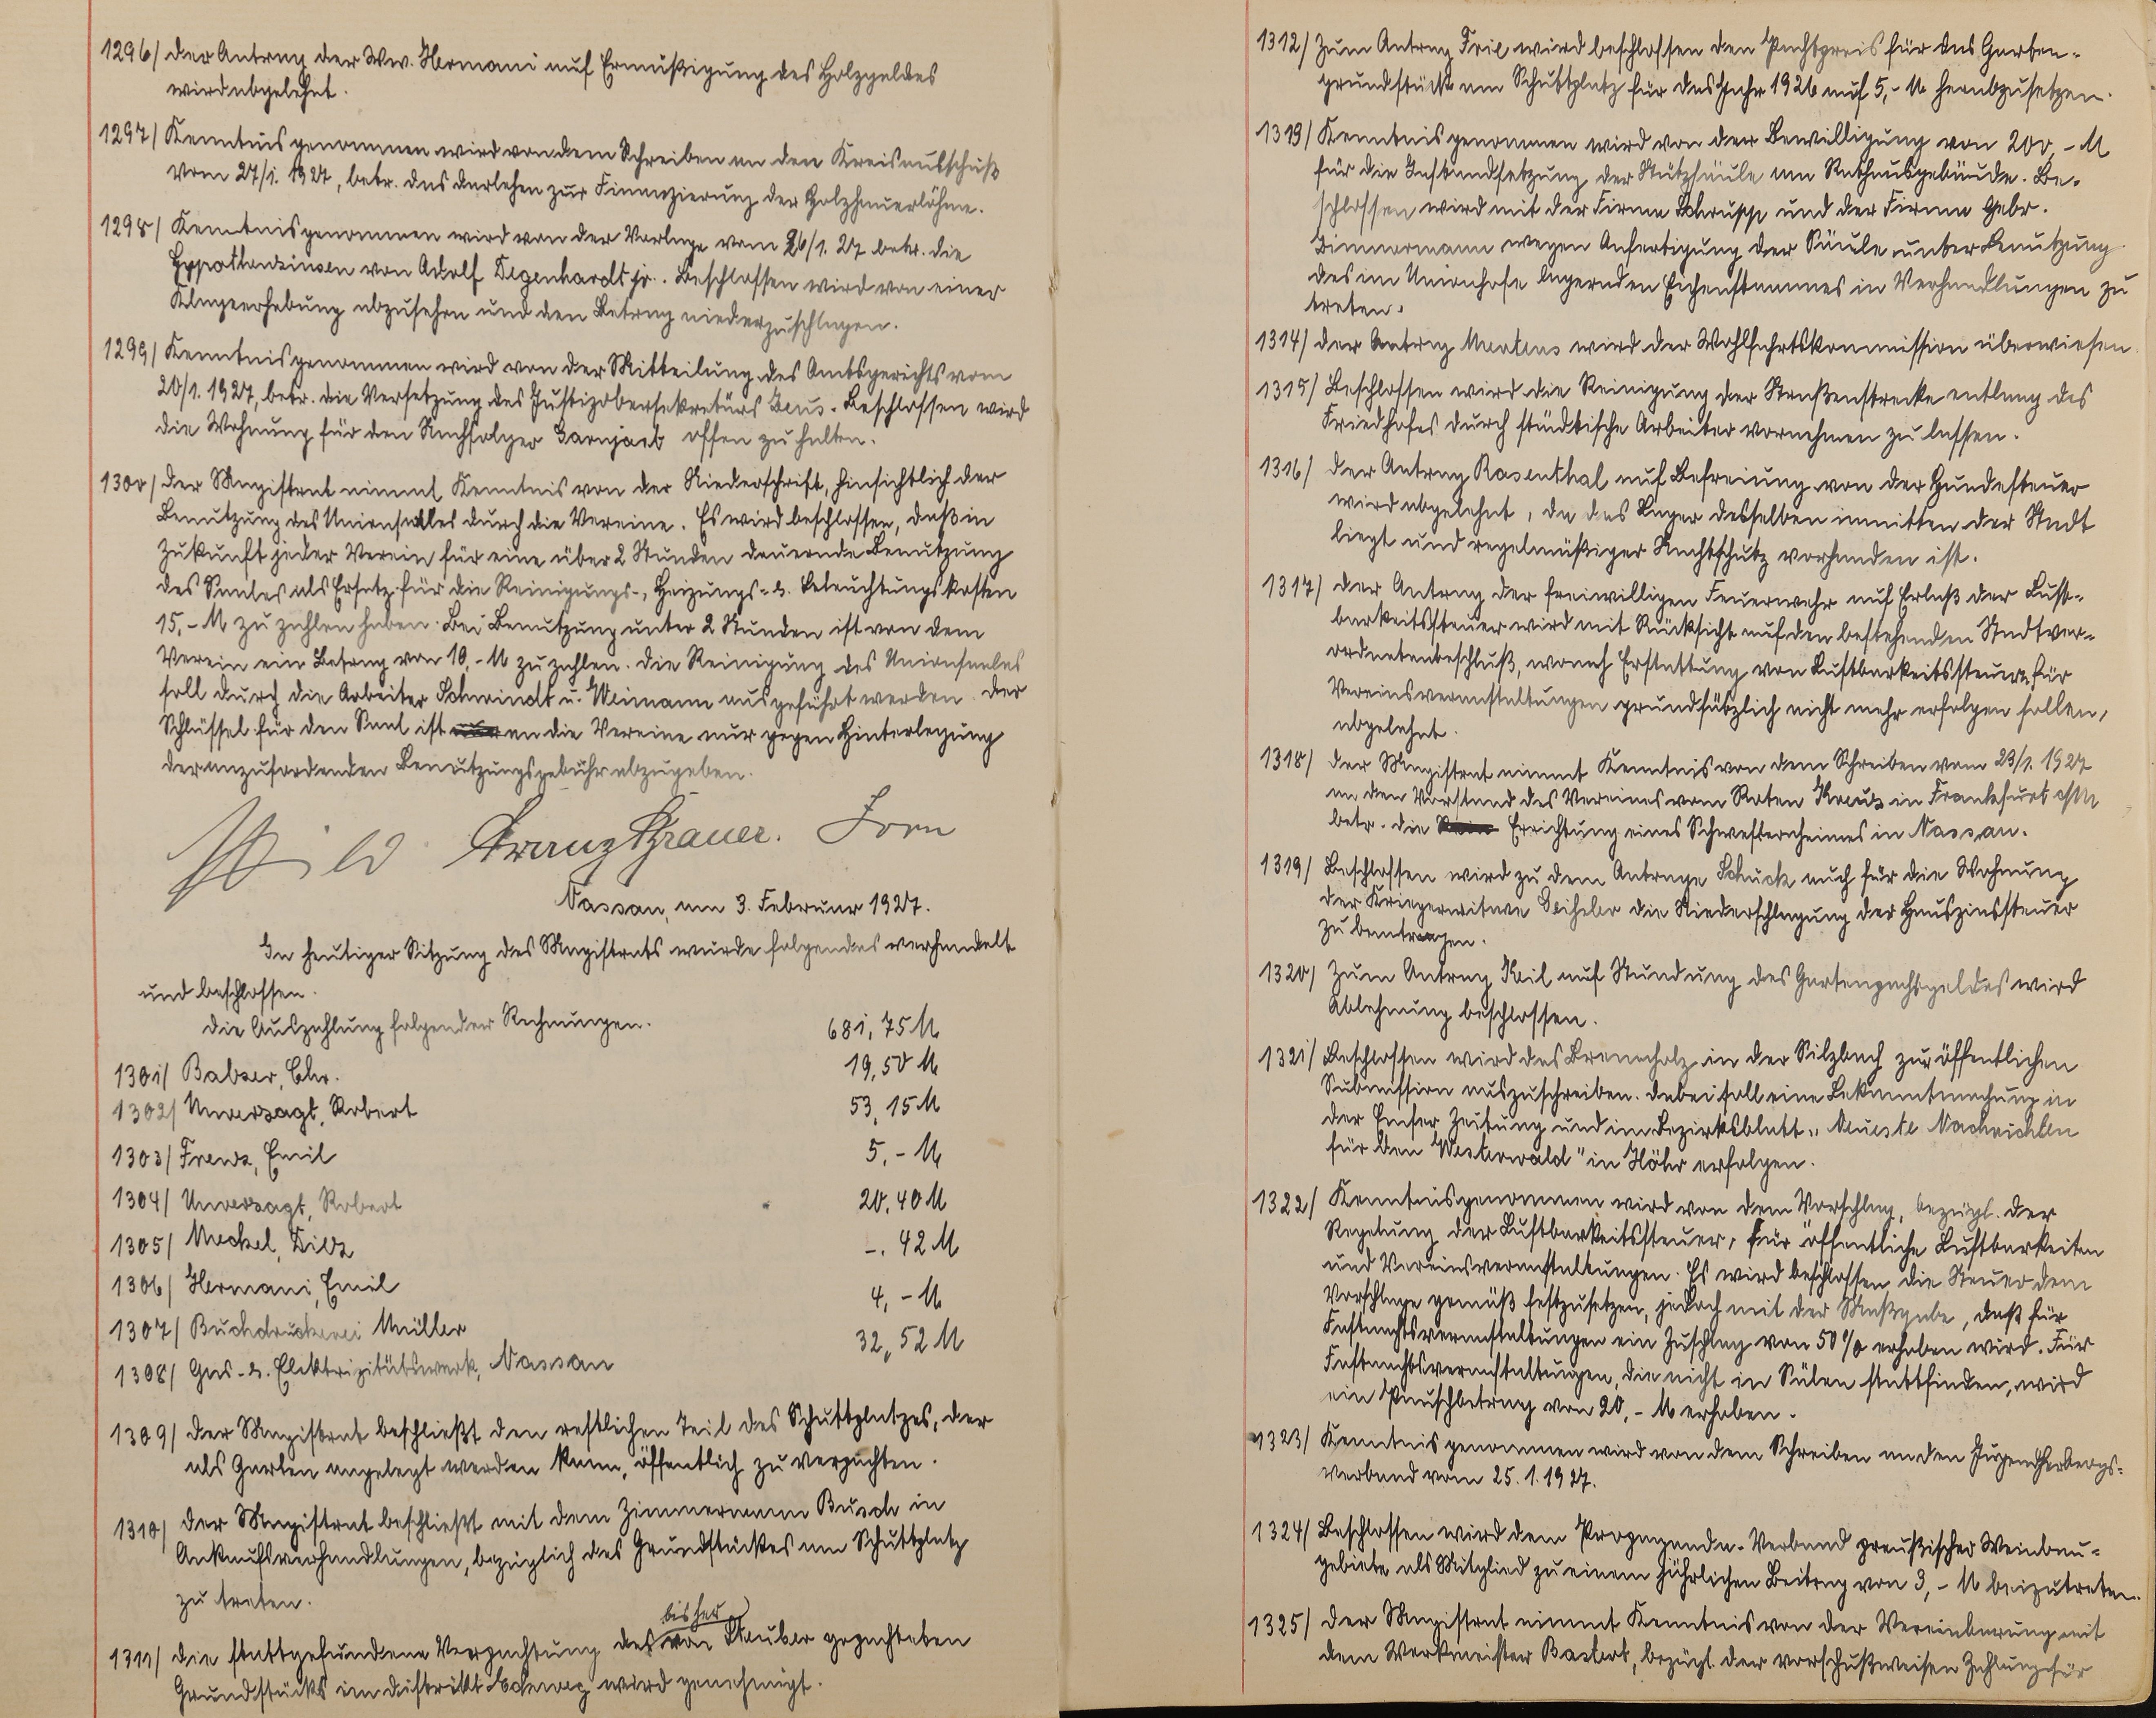 1296/ Der Antrag der Ww. Hermani auf Ermäßigung des Holzgeldes
wird abgelehnt.
1297/ Kenntnis genommen wird von dem Schreiben an den Kreisausschuß
vom 27/1. 1927, betr. das Darlehen zur Finanzierung der Holzhauerlöhne.
1298/ Kenntnis genommen wird von der Vorlage vom 26/1. 27 betr. die
Hypothekzinsen von Adolf Degenhardt jr.. Beschlossen wird von einer
Klageerhebung abzusehen und den Betrag niederzuschlagen.
1299/ Kenntnis genommen wird von der Mitteilung des Amtsgerichts vom
20/1. 1927, betr. die Versetzung des Justizobersekretärs. Beschlossen wird
die Wohnung für den Nachfolger offen zu halten.
1300/ Der Magistrat nimmt Kenntnis von der Niederschrift, hinsichtlich der
Benutzung des Unionsaales durch die Vereine. Es wird beschlossen, daß in
Zukunft jeder Verein für eine über 2 Stunden dauernde Benutzung
des Saales als Ersatz für die Reinigungs-, Heizungs- u. Beleuchtungskosten
15,- M zu zahlen haben. Bei Benutzung unter 2 Stunden ist von dem
Verein ein Betrag von 10,- M zu zahlen. Die Reinigung des Unionsaales
soll durch die Arbeiter Schwindt u. Weimann ausgeführt werden. Der
Schlüssel für den Saal ist an die Vereine nur gegen Hinterlegung
der anzufordenden Benutzungsgebühr abzugeben.
Nassau, am 3. Februar 1927.
In heutiger Sitzung des Magistrats wurde folgendes verhandelt
und beschlossen.
Die Auszahlung folgender Rechnungen.
1301/ Balzer, Chr. 681,75 M
1302/ Unverzagt, Robert 19,50 M
1303/ Emil 53,15 M
1304/ Unverzagt, Robert 5,- M
1305/ Meckel, 20.40 M
1306/ Hermani, Emil -.42 M
1307/ Buchdruckerei Müller 4,- M
1308/ Gas- u. Elektrizitätswerk, Nassau 32,52 M
1309/ Der Magistrat beschließt den restlichen Teil des Schuttplatzes, der
als Garten angelegt werden kann, öffentlich zu verpachten.
1310/ Der Magistrat beschließt mit dem Zimmermann Busch in
Ankaufsverhandlungen, bezüglich des Grundstückes am Schuttplatz
zu treten.
bisher
1311/ Die stattgefundene Verpachtung des von Stauber gepachteten
Grundstücks im Distrikt wird genehmigt.
1312/ Zum Antrag wird beschlossen den Pachtpreis für das Garten-
grundstück am Schuttplatz für das Jahr 1926 auf 5,- M herabzusetzen.
1313/ Kenntnis genommen wird von der Bewilligung von 200,- M
für die Instandsetzung der Stützsäule am Rathausgebäude. Be-
schlossen wird mit der Firma Schrupp und der Firma Gebr.
Zimmermann wegen Anfertigung der Säule unter Benutzung
des im Unionhofe lagernden Eichenstammes in Verhandlungen zu
treten.
1314/ Der Antrag Mertens wird der Wohlfahrtskommission überwiesen.
1315/ Beschlossen wird die Reinigung der Straßenstrecke entlang des
Friedhofes durch städtische Arbeiter vornehmen zu lassen.
1316/ Der Antrag Rosenthal auf Befreiung von der Hundesteuer
wird abgelehnt, da das Lager desselben inmitten der Stadt
liegt und regelmäßiger Nachtschutz vorhanden ist.
1317/ Der Antrag der freiwilligen Feuerwehr auf Erlaß der Lust-
barkeitssteuer wird mit Rücksicht auf den bestehenden Stadtver-
ordnetenbeschluß, wonach Erstattung von Lustbarkeitssteuern für
Vereinsveranstaltungen grundsätzlich nicht mehr erfolgen sollen,
abgelehnt.
1318/ Der Magistrat nimmt Kenntnis von dem Schreiben vom 23/1. 1927
an den Vorstand des Vereines vom Roten Kreuz in Frankfurt a/M
betr. die Errichtung eines Schwesternheimes in Nassau.
1319/ Beschlossen wird zu dem Antrage Schuck auch für die Wohnung
der Kriegerwitwe die Niederschlagung der Hauszinssteuer
zu beantragen.
1320/ Zum Antrag Keil auf Stundung des Gartenpachtgeldes wird
Ablehnung beschlossen.
1321/ Beschlossen wird das Brennholz in der Silzbach zur öffentlichen
Submission auszuschreiben. Dabei soll eine Bekanntmachung in
der Emser Zeitung und im Bezirksblatt „Neueste Nachrichten
für den Westerwald" in Höhr erfolgen.
1322/ Kenntnis genommen wird von dem Vorschlag, bezügl. der
Regelung der Lustbarkeitssteuer, für öffentliche Lustbarkeiten
und Vereinsveranstaltungen. Es wird beschlossen die Steuer dem
Vorschlage gemäß festzusetzen, jedoch mit der Maßgabe, daß für
Fastnachtsveranstaltungen ein Zuschlag von 50 % erhoben wird. Für
Fastnachtsveranstaltungen, die nicht in Sälen stattfinden, wird
ein Pauschbetrag von 20,- M erhoben.
1323/ Kenntnis genommen wird von dem Schreiben an den Jugendherbergs-
verband vom 25.1.1927.
1324/ Beschlossen wird dem Propaganda-Verband preußischer Weinbau-
gebiete als Mitglied zu einem jährlichen Beitrag von 3,- M beizutreten.
1325/ Der Magistrat nimmt Kenntnis von der Vereinbarung mit
dem Werkmeister, bezügl. der vorschußweisen Zahlung für